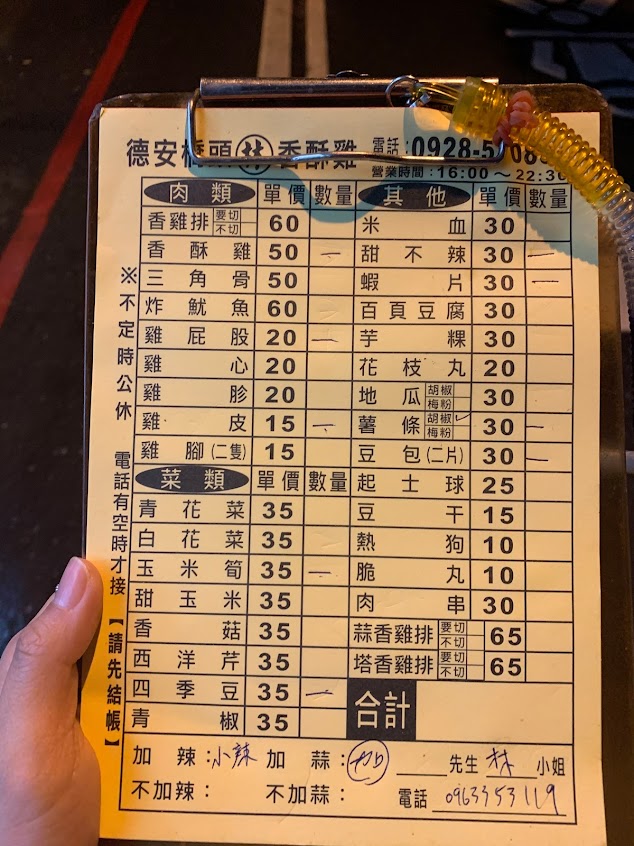 德安橋頭 林 香酥雞 電話：0928-5
營業時間：16:00～22:30
肉類 單價 數量 其他 單價 數量
香雞排 要切 不切 60 米血 30
香酥雞 50 一 甜不辣 30 一
三角骨 50 蝦片 30 一
炸魷魚 60 百頁豆腐 30
雞屁股 20 一 芋粿 30
雞心 20 花枝丸 20
雞胗 20 地瓜 胡椒 梅粉 30
雞皮 15 一 薯條 胡椒 ✓ 梅粉 30 一
雞腳(二隻) 15 豆包(二片) 30 一
菜類 單價 數量 起士球 25
青花菜 35 豆干 15
白花菜 35 熱狗 10
玉米筍 35 一 脆丸 10
甜玉米 35 肉串 30
香菇 35 蒜香雞排 要切 不切 65
西洋芹 35 塔香雞排 要切 不切 65
四季豆 35 一 合計
青椒 35
加辣：小辣 加蒜：加 先生 林 小姐
不加辣： 不加蒜： 電話 0963353119
※不定時公休 電話有空時才接【請先結帳】